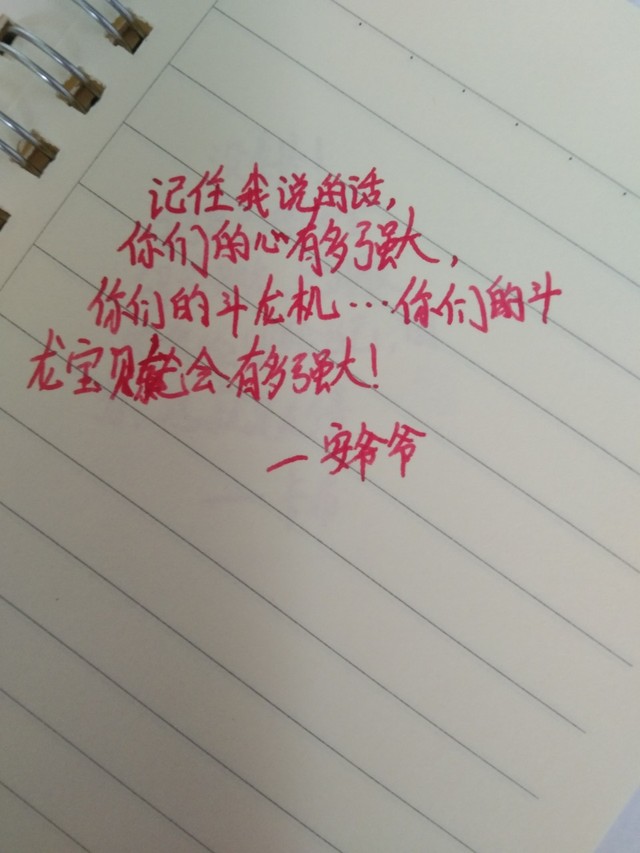 记住我说的话,
你们的心有多强大,
你们的斗龙机…你们的斗
龙宝贝就会有多强大!
—安爷爷